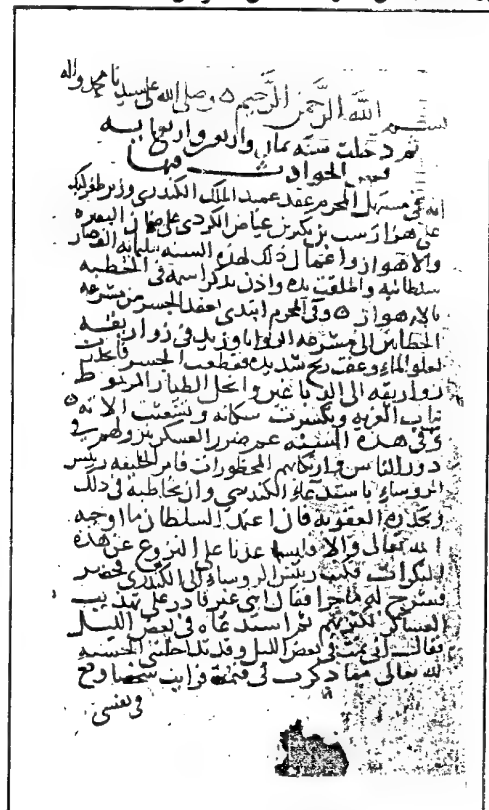 بسم الله الرحمن الرحيم وصلى الله على سيدنا محمد واله
ثم دخلت سنة ثمان واربعين واربعمايه
فمن الحوادث فيها
انه في مستهل المحرم عقد عميد الملك الكندري وزير طغرلبك
على هزارسب بن بنكير بن عياض الكردي على ضمان البصره
والاهواز واعمال ذلك لهذه السنه بثلثمايه الف دينار
سلطانيه واطلقت يده واذن بذكر اسمه في الخطبه
بالاهواز وفي المحرم ابتدي بعقد الجسر من مشرعه
الحطابين الى مشرعه الروايا وزيد في زواريقه
لعلو الماء وعصفت ريح شديده فقطعت الجسر فانحدرت
زواريقه الى الدباغين وانحل الطيار المربوط
بباب الغربه وتكسرت سكانه وتشعثت الاته
وفي هذه السنه عم ضرر العسكر بنزولهم في
دور الناس وارتكابهم المحظورات فامر الخليفه رييس
الروساء باستدعاء الكندري وان يخاطبه في ذلك
ويحذره العقوبه فان اعتمد السلطان ما اوجبه
الله تعالى والا فليساعدنا على النزوح عن هذه
المنكرات فكتب رييس الروساء الى الكندري فحضر
فشرح له ما جرا فقال اني غير قادر على تهذيب
العساكر لكثرتهم ثم استدعاه في بعض الليل
فقال اني نمت في بعض الليل وقد تداخلني الخشيه
لله تعالى مما ذكرت لي فنمت فرايت شخصا وقع
في نفسي